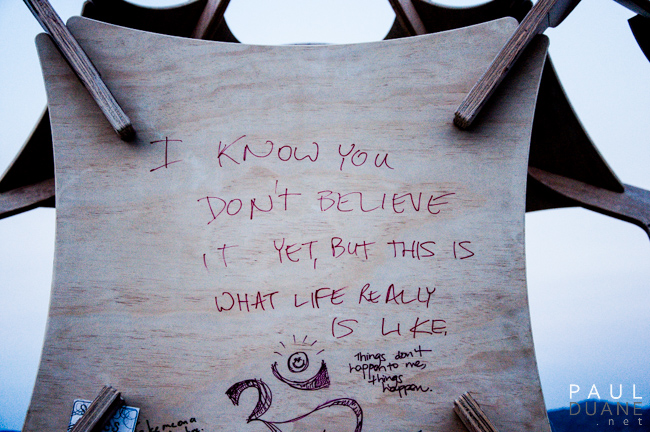 I KNOW YOU
DON'T BELIEVE
IT YET, BUT THIS IS
WHAT LIFE REALLY
IS LIKE.
Things don't
happen to me,
things
happen.
ॐ
PAUL
DUANE
.net